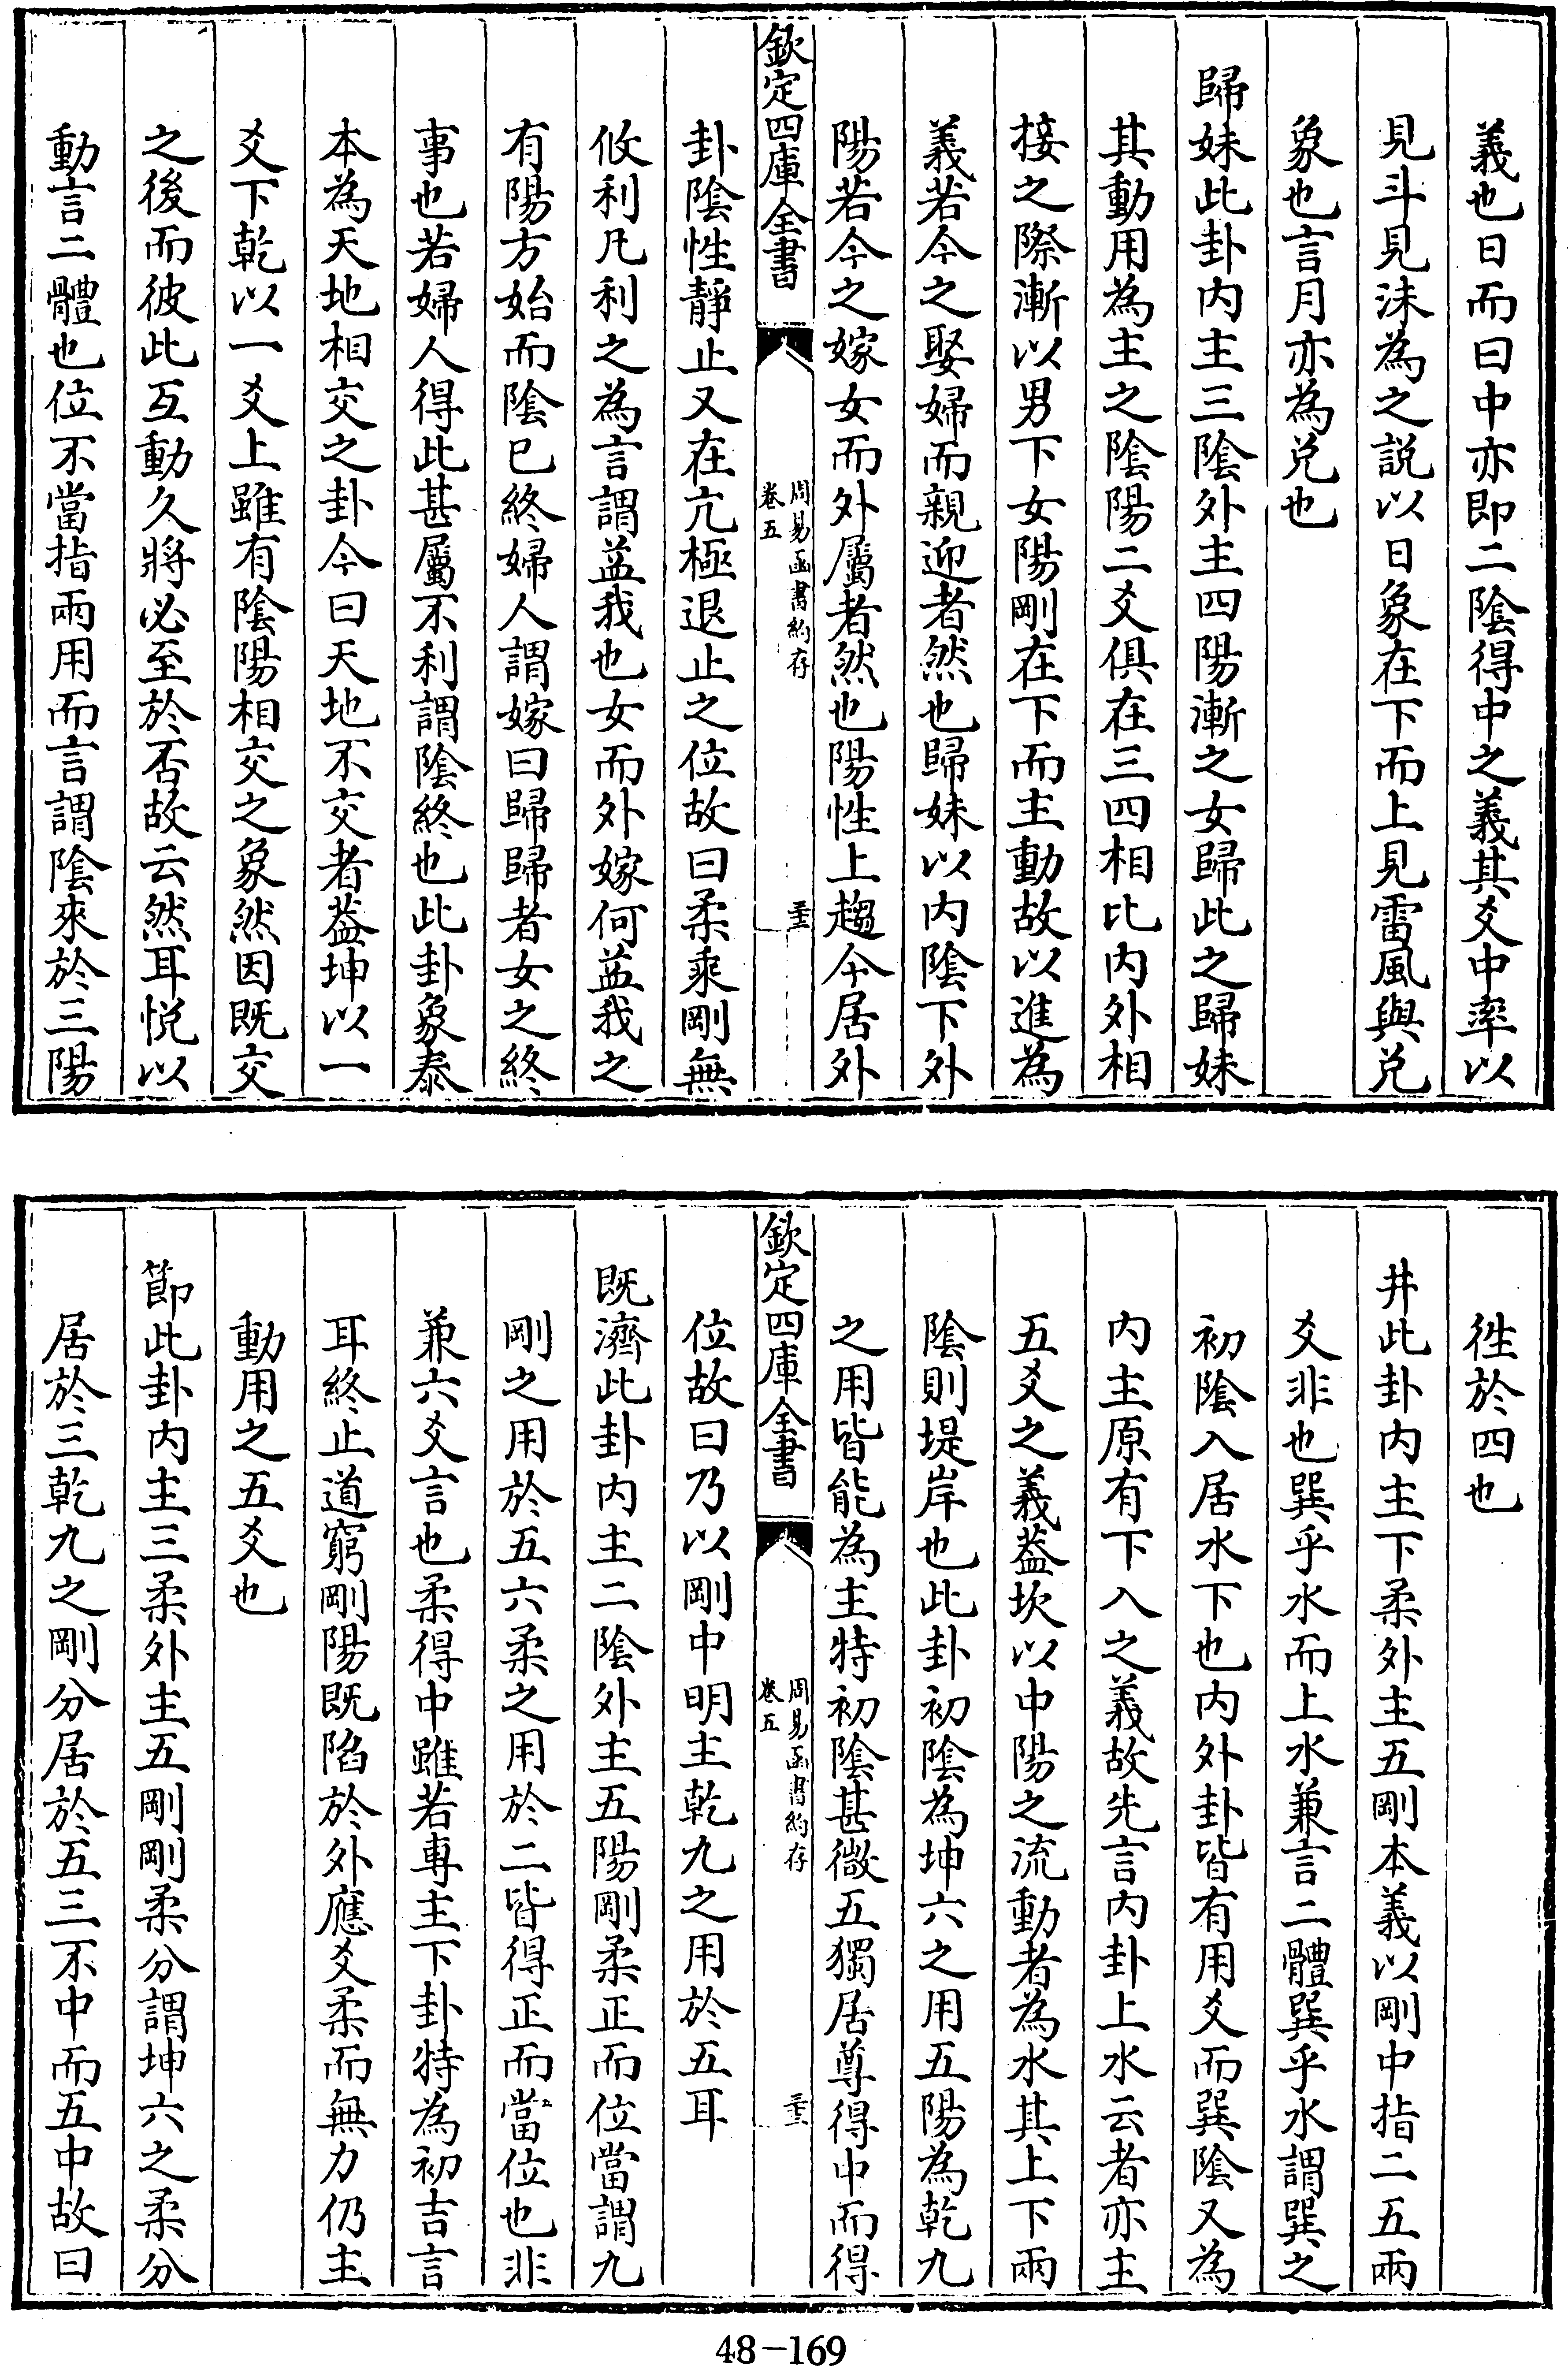 義也日而曰中亦即二陰得中之義其爻中率以
見斗見沬為之説以日象在下而上見雷風與兌
象也言月亦為兌也
歸妹此卦内主三陰外主四陽漸之女歸此之歸妹
其動用為主之陰陽二爻俱在三四相比内外相
接之際漸以男下女陽剛在下而主動故以進為
義若今之娶婦而親迎者然也歸妹以内陰下外
陽若今之嫁女而外屬者然也陽性上趨今居外
欽定四庫全書
周易函書約存
卷五
卦陰性靜止又在亢極退止之位故曰柔乘剛無
攸利凡利之為言謂益我也女而外嫁何益我之
有陽方始而陰已終婦人謂嫁曰歸歸者女之終
事也若婦人得此甚屬不利謂陰終也此卦象泰
本為天地相交之卦今曰天地不交者葢坤以一
爻下乾以一爻上雖有陰陽相交之象然因既交
之後而彼此互動久將必至於否故云然耳悦以
動言二體也位不當指兩用而言謂陰來於三陽
徃於四也
井此卦内主下柔外主五剛本義以剛中指二五兩
爻非也巽乎水而上水兼言二體巽乎水謂巽之
初陰入居水下也内外卦皆有用爻而巽陰又為
内主原有下入之義故先言内卦上水云者亦主
五爻之義葢坎以中陽之流動者為水其上下兩
陰則堤岸也此卦初陰為坤六之用五陽為乾九
之用皆能為主特初陰甚微五獨居尊得中而得
欽定四庫全書
周易函書約存
卷五
位故曰乃以剛中明主乾九之用於五耳
既濟此卦内主二陰外主五陽剛柔正而位當謂九
剛之用於五六柔之用於二皆得正而當位也非
兼六爻言也柔得中雖若專主下卦特為初吉言
耳終止道窮剛陽既陷於外應爻柔而無力仍主
動用之五爻也
節此卦内主三柔外主五剛剛柔分謂坤六之柔分
居於三乾九之剛分居於五三不中而五中故曰
48-169